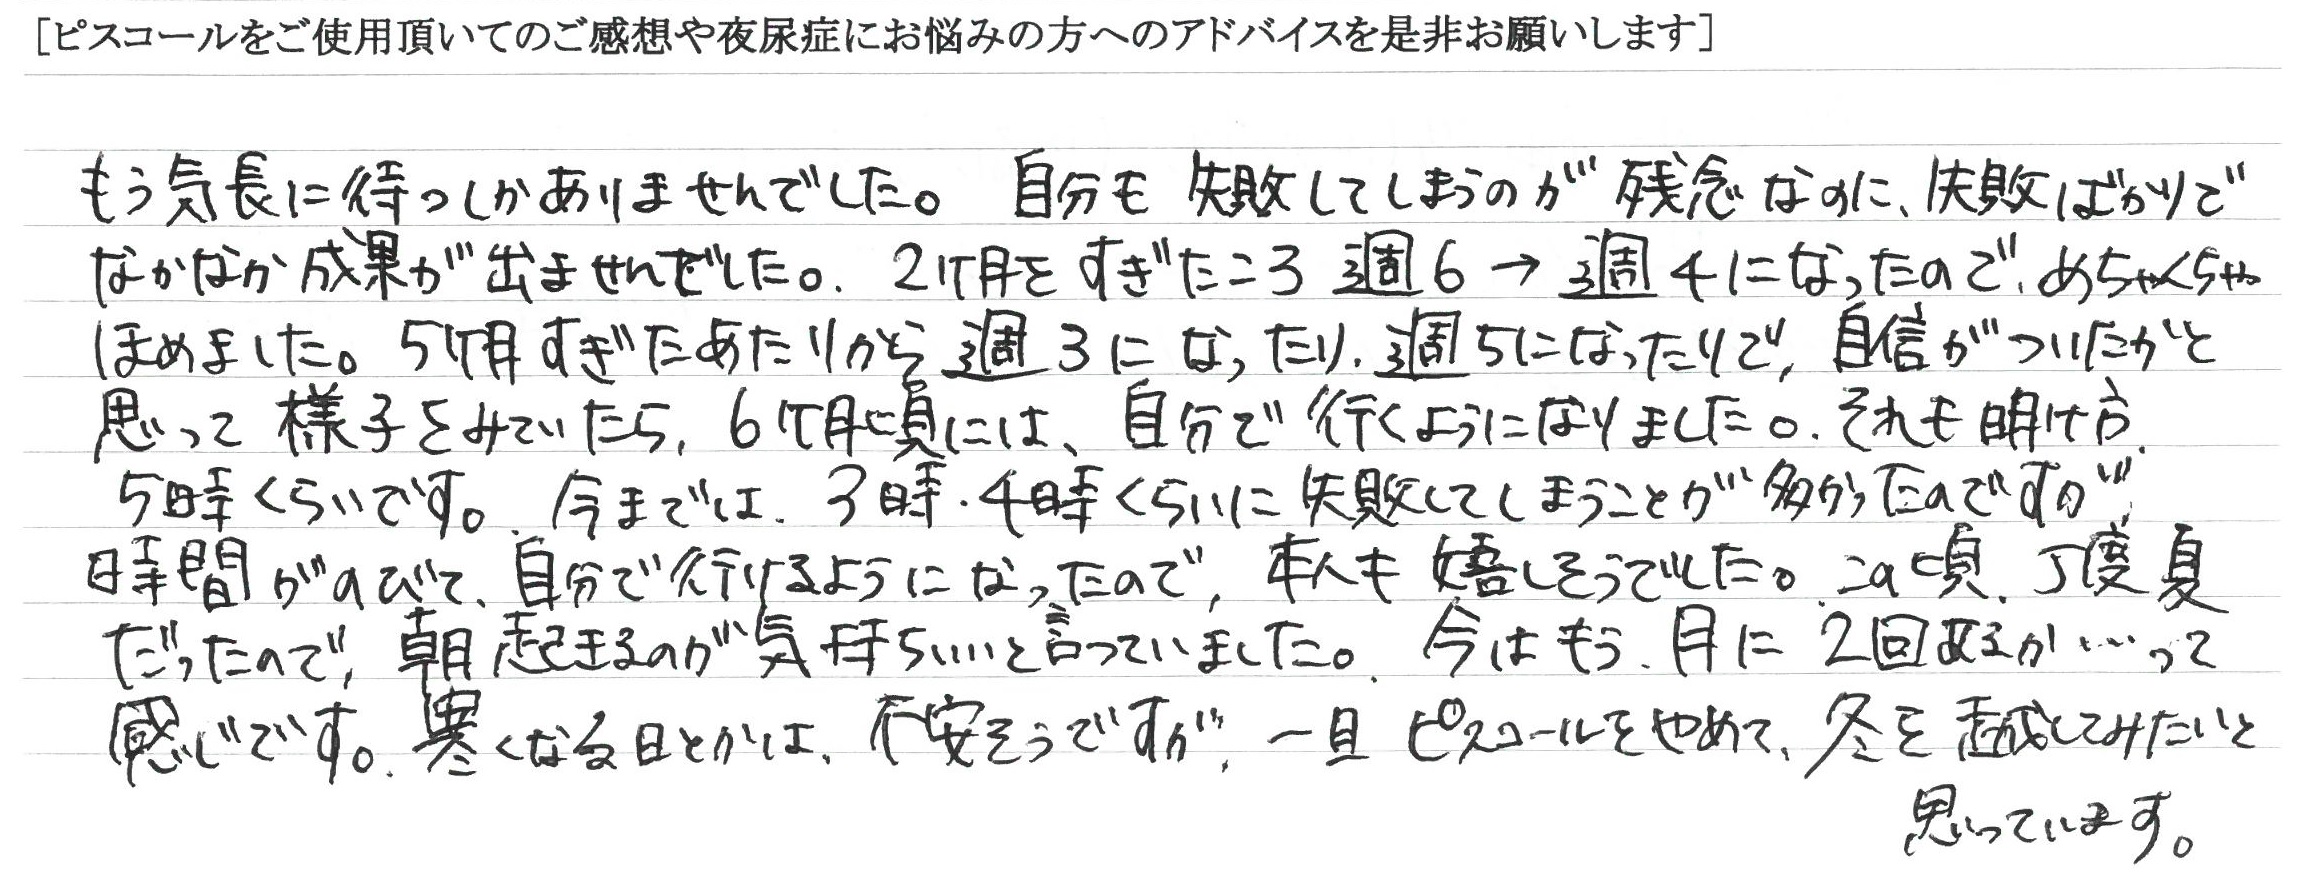 [ピスコールをご使用頂いてのご感想や夜尿症にお悩みの方へのアドバイスを是非お願いします]
もう気長に待つしかありませんでした。 自分も 失敗してしまうのが 残念 なのに、失敗ばかりで
なかなか成果が 出ませんでした。 2ヶ月を すぎたころ 週6 → 週4になったので、めちゃくちゃ
ほめました。 5ヶ月 すぎたあたりから 週3に なったり、週5になったりで、自信がついたかと
思って 様子をみていたら、6ヶ月頃には、自分で 行くようになりました。それも 明け方
5時くらいです。 今までは、3時・4時くらいに 失敗してしまうことが 多かったのですが、
時間がのびて、自分で行けるようになったので、本人も 嬉しそうでした。この頃、丁度 夏
だったので、朝 起きるのが 気持ちいいと言っていました。 今は もう、月に 2回あるか…って
感じです。 寒くなる日とかは、不安そうですが、一旦 ピスコールをやめて、冬を 越してみたいと
思っています。